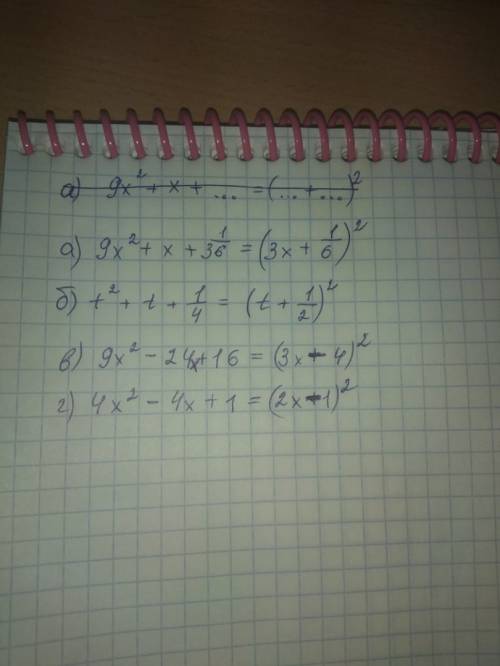 а) 9x² + x + ... = (... + ...)²
а) 9x² + x + 1/36 = (3x + 1/6)²
б) t² + t + 1/4 = (t + 1/2)²
в) 9x² - 24x + 16 = (3x - 4)²
г) 4x² - 4x + 1 = (2x - 1)²